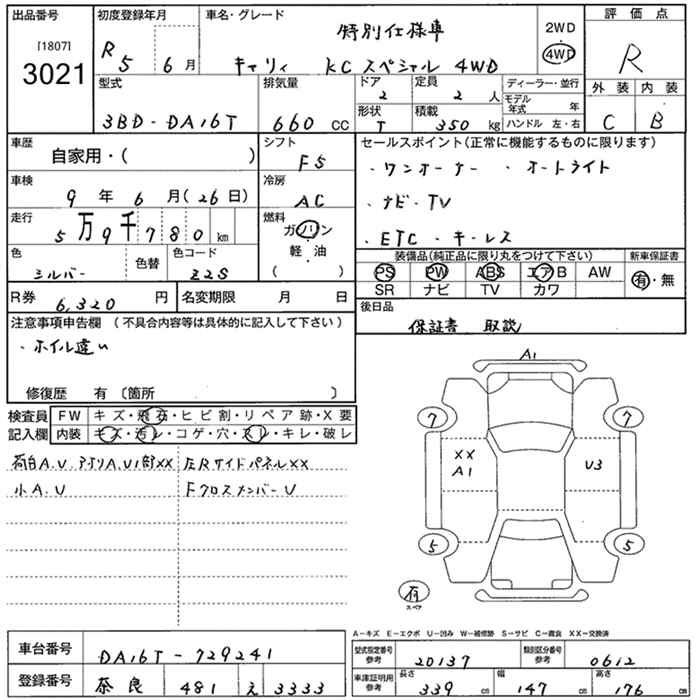 出品番号
[1807]
3021
初度登録年月
R 5 6 月
車名・グレード
特別仕様車
キャリィ KCスペシャル 4WD
2WD
4WD
評価点
R
外装 内装
C B
型式
3BD-DA16T
排気量
660 CC
ドア
2
定員
2 人
形状
T
積載
350 kg
ディーラー・並行
モデル年式 年
ハンドル 左・右
車歴
自家用・( )
シフト
F5
車検
9 年 6 月(26日)
冷房
AC
走行
5万9千780 km
燃料
ガソリン
軽・油
( )
色
シルバー
色替
色コード
Z2S
R券 6,320 円
名変期限 月 日
セールスポイント(正常に機能するものに限ります)
・ワンオーナー ・オートライト
・ナビ・TV
・ETC・キーレス
装備品(純正品に限り丸をつけて下さい)
PS PW ABS エアB AW
SR ナビ TV カワ
新車保証書
有・無
後日品
保証書 取説
注意事項申告欄(不具合内容等は具体的に記入して下さい)
・ホイル違い
修復歴 有 〔箇所 〕
検査員
記入欄
FW キズ・飛石・ヒビ割・リペア跡・X要
内装 キズ・汚レ・コゲ・穴・スレ・キレ・破レ
荷台A.U.アオリA.U1部XX
小A.U
FクロスメンバーU
A1
7
7
XX
A1
U3
5
5
有
スペア
A-キズ E-エクボ U-凹み W-補修跡 S-サビ C-腐食 XX-交換済
車台番号 DA16T-729241
登録番号 奈良 481 え 3333
型式指定番号
参考
20137
類別区分番号
参考
0612
車庫証明用
参考
長さ 339 cm
幅 147 cm
高さ 176 cm